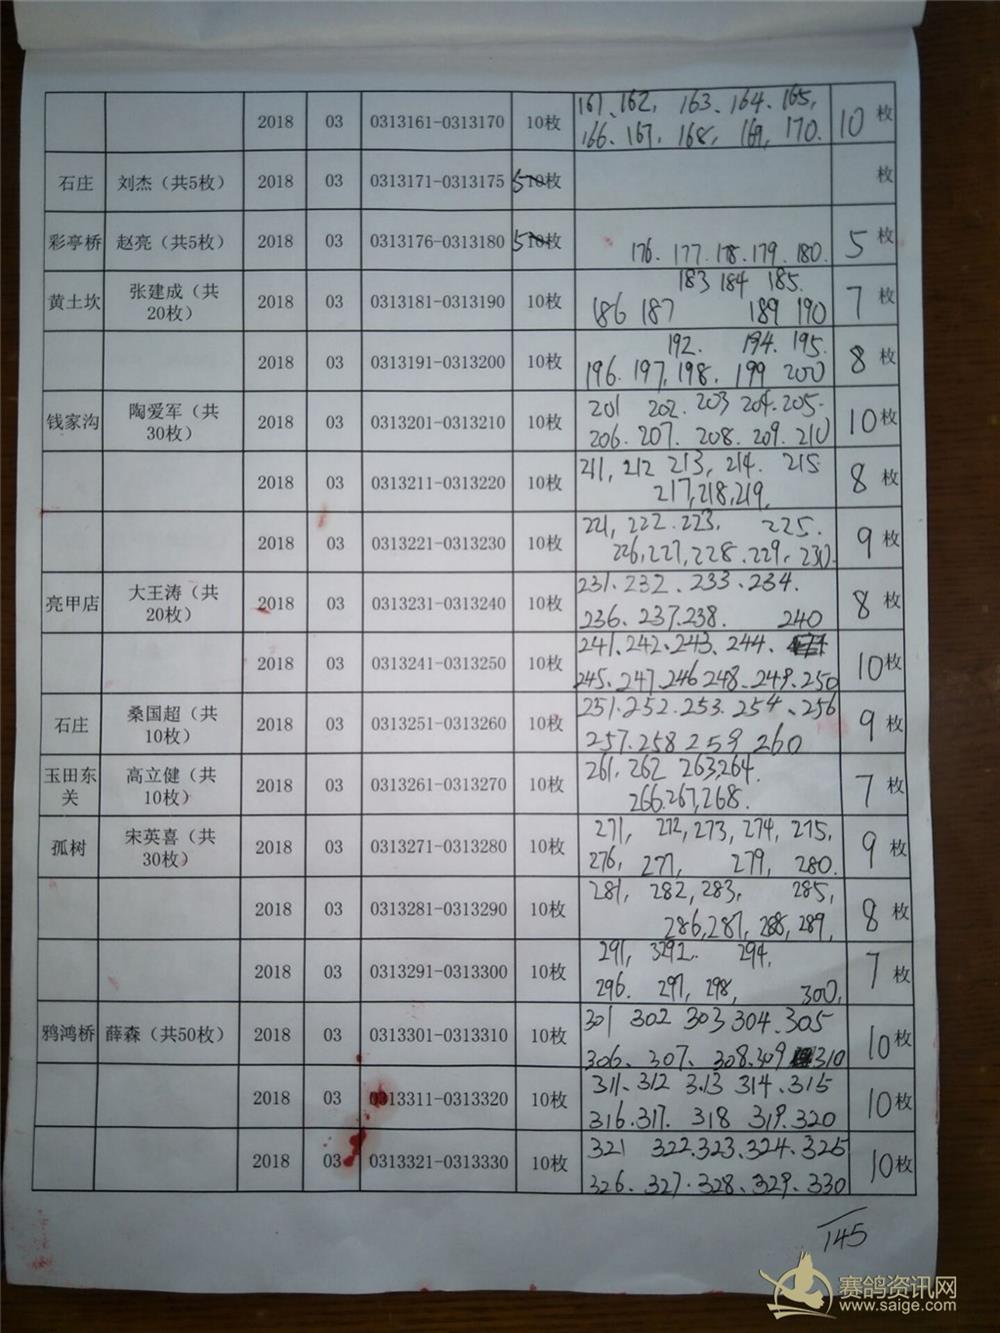 2018 03 0313161-0313170 10枚 161、162, 163、164、165,
166、167, 168, 169, 170. 10枚
石庄 刘杰（共5枚） 2018 03 0313171-0313175 5 10枚 枚
彩亭桥 赵亮（共5枚） 2018 03 0313176-0313180 5 10枚 176、177.178.179.180. 5枚
黄土坎 张建成（共
20枚） 2018 03 0313181-0313190 10枚 183 184 185.
186 187 189 190 7枚
2018 03 0313191-0313200 10枚 192. 194.195.
196.197,198. 199 200 8枚
钱家沟 陶爱军（共
30枚） 2018 03 0313201-0313210 10枚 201 202.203 204.205.
206.207. 208.209.210 10枚
2018 03 0313211-0313220 10枚 211, 212 213, 214. 215
217,218,219, 8枚
2018 03 0313221-0313230 10枚 221, 222.223. 225.
226,227,228.229,230. 9枚
亮甲店 大王涛（共
20枚） 2018 03 0313231-0313240 10枚 231.232、233、234.
236、237.238. 240 8枚
2018 03 0313241-0313250 10枚 241、242、243、244、
245、247.246 248、249.250 10枚
石庄 桑国超（共
10枚） 2018 03 0313251-0313260 10枚 251.252.253.254、256
257.258 259 260 9枚
玉田东
关 高立健（共
10枚） 2018 03 0313261-0313270 10枚 261, 262 263,264.
266.267,268. 7枚
孤树 宋英喜（共
30枚） 2018 03 0313271-0313280 10枚 271, 272,273, 274, 275,
276, 277, 279, 280. 9枚
2018 03 0313281-0313290 10枚 281, 282,283, 285,
286,287, 288,289, 8枚
2018 03 0313291-0313300 10枚 291, 3292. 294,
296. 297, 298, 300, 7枚
鸦鸿桥 薛森（共50枚） 2018 03 0313301-0313310 10枚 301 302 303 304.305
306、307、308.309 310 10枚
2018 03 0313311-0313320 10枚 311、312 313 314、315
316.317. 318 319.320 10枚
2018 03 0313321-0313330 10枚 321 322.323.324.325
326、327.328、329、330 10枚
145
赛鸽资讯网
www.saige.com